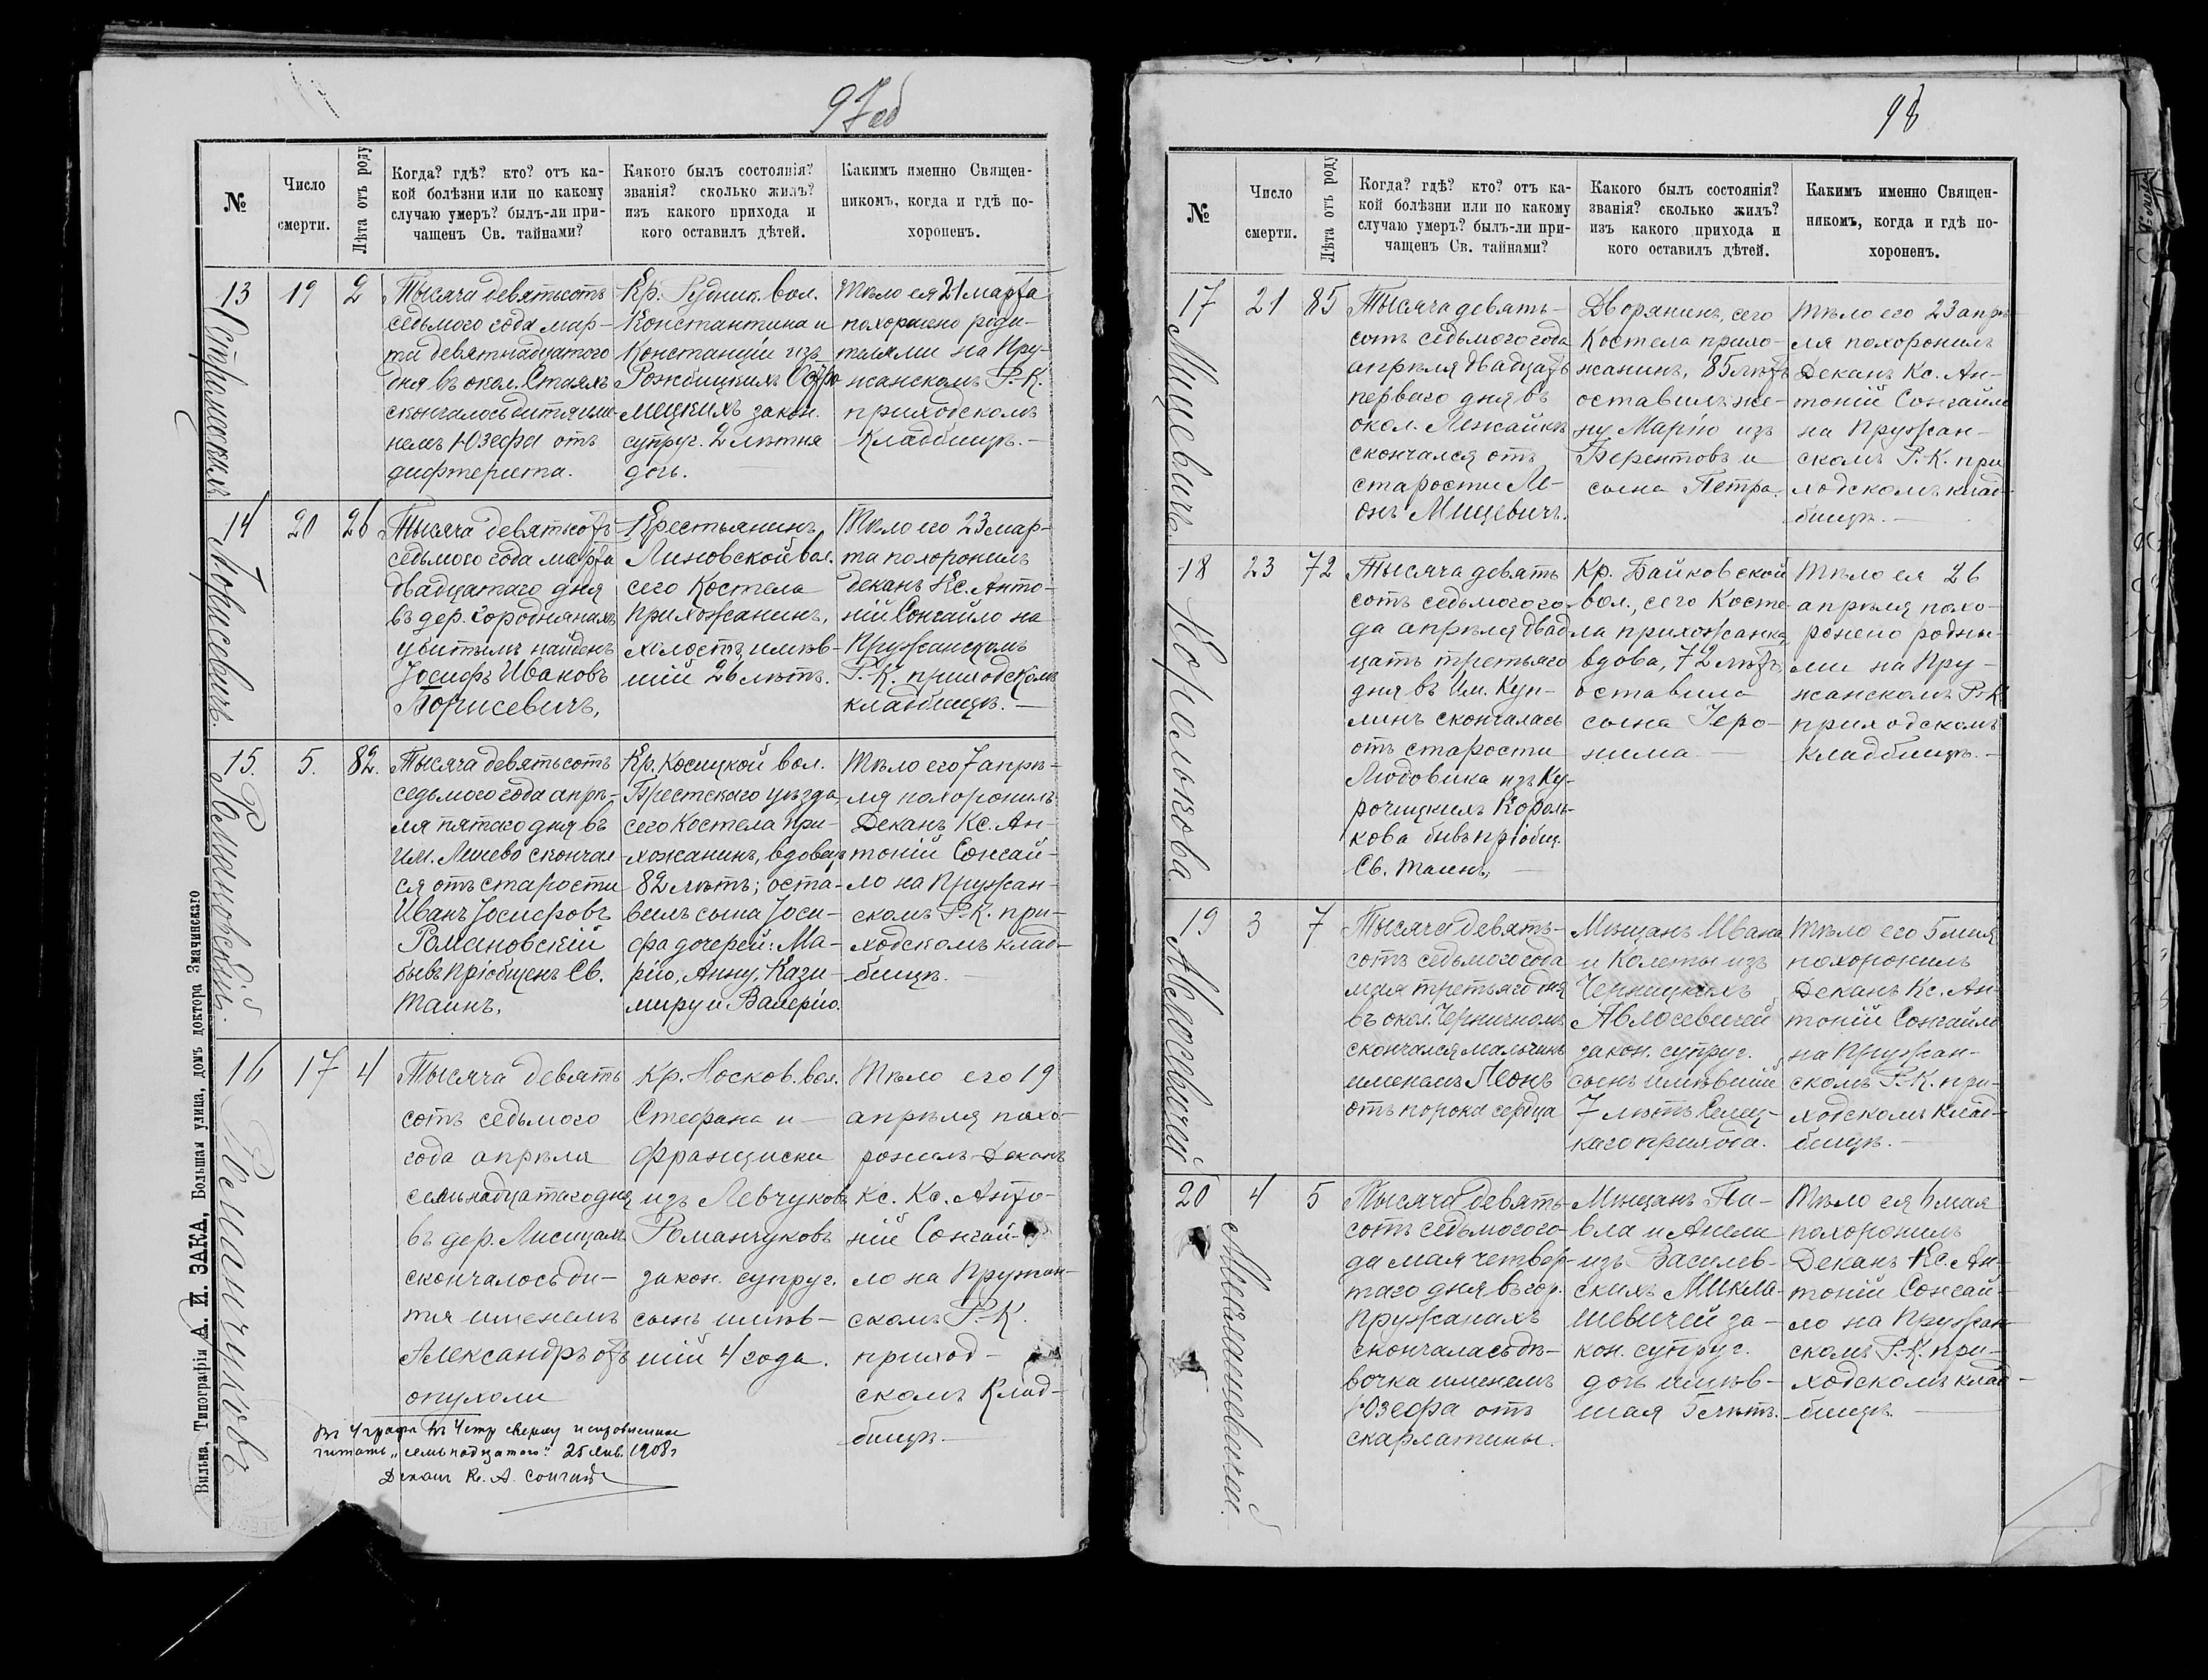 97об
№
Число
смерти.
Лѣта отъ роду
Когда? гдѣ? кто? отъ ка-
кой болѣзни или по какому
случаю умеръ? былъ-ли при-
чащенъ Св. тайнами?
Какого былъ состоянія?
званія? сколько жилъ?
изъ какого прихода и
кого оставилъ дѣтей.
Какимъ именно Священ-
никомъ, когда и гдѣ по-
хороненъ.
13
19
2
Тысяча девятьсотъ
седьмого года мар-
та девятнадцатаго
дня въ окол. Стаяхъ
скончалось дитя име-
немъ Юзефа отъ
дифтерита.
Кр. Рудник. вол.
Константина и
Констанціи изъ
мицкихъ закон.
супруг. 2 лѣтняя
дочь.
Тѣло ея 21 марта
похоронено роди-
телями на Пру-
жанскомъ Р.-К.
приходскомъ
кладбищѣ.—
14
Борисевичъ.
20
26
Тысяча девятьсотъ
седьмого года марта
двадцатаго дня
въ дер. Городнянахъ
убитымъ найденъ
Іосифъ Ивановъ
Борисевичъ.
Крестьянинъ
Линовской вол.
сего Костела
прихожанинъ,
холостъ, имѣв-
шій 26 лѣтъ.
Тѣло его 23 мар-
та похоронилъ
Деканъ Кс. Анто-
ній Сонгайло на
Пружанскомъ
Р.-К. приходскомъ
кладбищѣ.—
15.
Романовскій.
5.
82.
Тысяча девятьсотъ
седьмого года апрѣ-
ля пятаго дня въ
им. Линево скончал-
ся отъ старости
Иванъ Іосифовъ
Романовскій
бывъ пріобщенъ Св.
Таинъ.
Кр. Косицкой вол.
Брестскаго уѣзда,
сего Костела при-
хожанинъ, вдовецъ
82 лѣтъ; оста-
вилъ сына Іоси-
фа дочерей: Ма-
рію, Анну, Кази-
миру и Валерію.
Тѣло его 7 апрѣ-
ля похоронилъ
Деканъ Кс. Ан-
тоній Сонгай-
ло на Пружан-
скомъ Р.-К. при-
ходскомъ клад-
бищѣ.—
16
Романчуковъ
17
4
Тысяча девять
сотъ седьмого
года апрѣля
семьнадцатаго дня
въ дер. Лисицахъ
скончалось ди-
тя именемъ
Александръ отъ
опухоли
Кр. Носков. вол.
Стефана и
Франциски
изъ Левчуковъ
Романчуковъ
закон. супруг.
сынъ имѣв-
шій 4 года.
Тѣло его 19
апрѣля похо-
ронилъ Деканъ
Кс. Кс. Анто-
ній Сонгай-
ло на Пружан-
скомъ Р.-К.
приход-
скомъ клад-
бищѣ—
Въ 4 графѣ въ 4 стр сверху исправленное
читать „семьнадцатаго“. 25 Янв. 1908 г
Деканъ Кс. А. Сонгайло
Вильна, Типографія А. И. ЗАКА, Большая улица, домъ доктора Змачинскаго
98
№
Число
смерти.
Лѣта отъ роду
Когда? гдѣ? кто? отъ ка-
кой болѣзни или по какому
случаю умеръ? былъ-ли при-
чащенъ Св. тайнами?
Какого былъ состоянія?
званія? сколько жилъ?
изъ какого прихода и
кого оставилъ дѣтей.
Какимъ именно Священ-
никомъ, когда и гдѣ по-
хороненъ.
17
Мицевичъ.
21
85
Тысяча девять-
сотъ седьмого года
апрѣля двадцать
перваго дня въ
окол. Лежайкѣ
скончался отъ
старости Ле-
онъ Мицевичъ.
Дворянинъ, сего
Костела прихо-
жанинъ, 85 лѣтъ
оставилъ же-
ну Марію изъ
Берентовъ и
сына Петра.
Тѣло его 23 апрѣ-
ля похоронилъ
Деканъ Кс. Ан-
тоній Сонгайло
на Пружан-
скомъ Р.-К. при
ходскомъ клад-
бищѣ.—
18
Королькова
23
72
Тысяча девять
сотъ седьмого го-
да апрѣля двад-
цать третьяго
дня въ Им. Куп-
линъ скончалась
отъ старости
Людовика изъ Ку-
рочицкихъ Король-
кова бывъ пріобщ.
Св. Таинъ.—
Кр. Байковской
вол., сего Косте-
ла прихожанка,
вдова, 72 лѣтъ
оставила
сына Іеро-
нима—
Тѣло ея 26
апрѣля похо-
ронено родны-
ми на Пру-
жанскомъ Р.-К
приходскомъ
кладбищѣ.—
19
Авлосевичей
3
7
Тысяча девять-
сотъ седьмого года
мая третьяго дня
въ окол. Черничномъ
скончался мальчикъ
именемъ Леонъ
отъ порока сердца
Мѣщанъ Ивана
и Колеты изъ
Черницкихъ
Авлосевичей
закон. супруг.
сынъ имѣвшій
7 лѣтъ Селец-
каго прихода.
Тѣло его 5 мая
похоронилъ
Деканъ Кс. Ан-
тоній Сонгайло
на Пружан-
скомъ Р.-К. при-
ходскомъ клад-
бищѣ.—
20
Миклашевичей.
4
5
Тысяча девять-
сотъ седьмого го-
да мая четвер-
таго дня въ гор.
Пружанахъ
скончалась дѣ-
вочка именемъ
Юзефа отъ
скарлатины.
Мѣщанъ Па-
вла и Анели
изъ Василев-
скихъ Микла-
шевичей за-
кон. супруг.
дочь имѣв-
шая 5 лѣтъ.
Тѣло ея 6 мая
похоронилъ
Деканъ Кс. Ан-
тоній Сонгай-
ло на Пружан-
скомъ Р.-К. при-
ходскомъ клад-
бищѣ.—